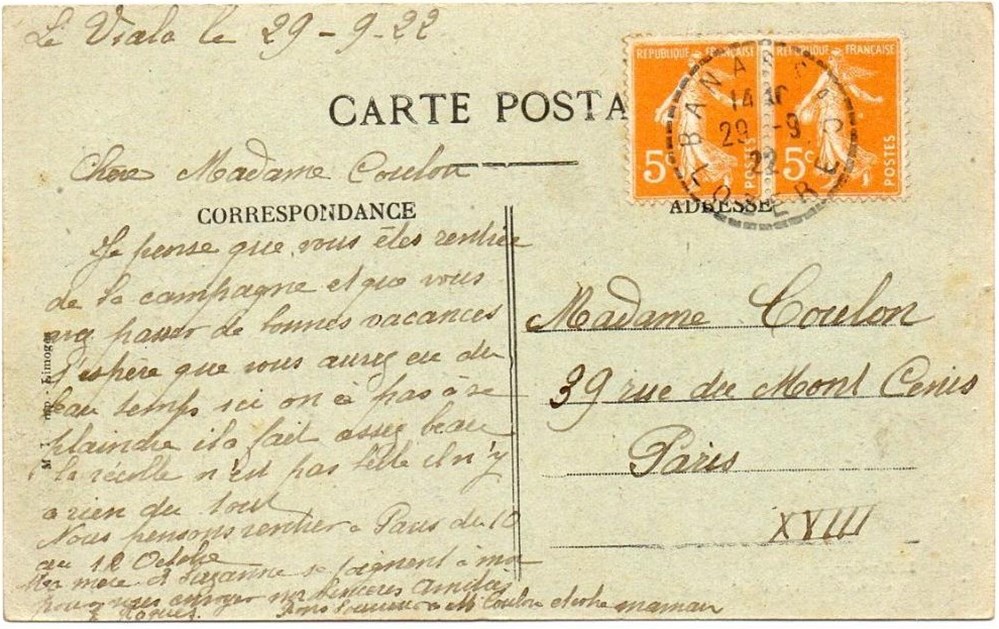 Le Viala le 29-9-22
CARTE POSTA
REPUBLIQUE FRANÇAISE
5c
POSTES
REPUBLIQUE FRANÇAISE
5c
POSTES
ALBANARET
14
29-9
22
LOZERE
Chere Madame Coulon
CORRESPONDANCE
ADRESSE
Je pense que vous êtes rentrée
de la campagne et que vous
passer de bonnes vacances
J'espère que vous aurez eu du
beau temps ici on à pas à se
plaindre il a fait assez beau
la récolte n'est pas belle il n'y
a rien du tout
Nous pensons rentrer a Paris du 10
au 12 Octobre
Ma mere et Suzanne se joignent à moi
pour vous envoyer nos sinceres amitiés
Bons a Mr Coulon et votre maman
Limoges
Madame Coulon
39 rue du Mont Cenis
Paris
XVIII